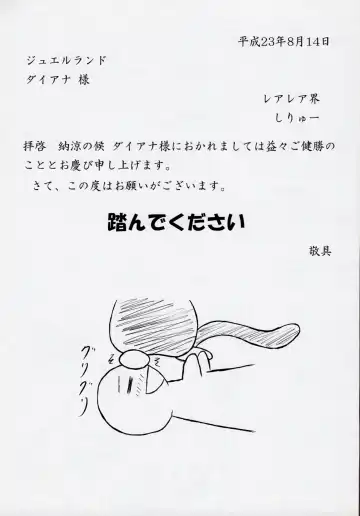 平成23年8月14日
ジュエルランド
ダイアナ 様
レアレア界
しりゅー
拝啓　納涼の候 ダイアナ様におかれましては益々ご健勝の
こととお慶び申し上げます。
さて、この度はお願いがございます。
踏んでください
敬具
グリグリ